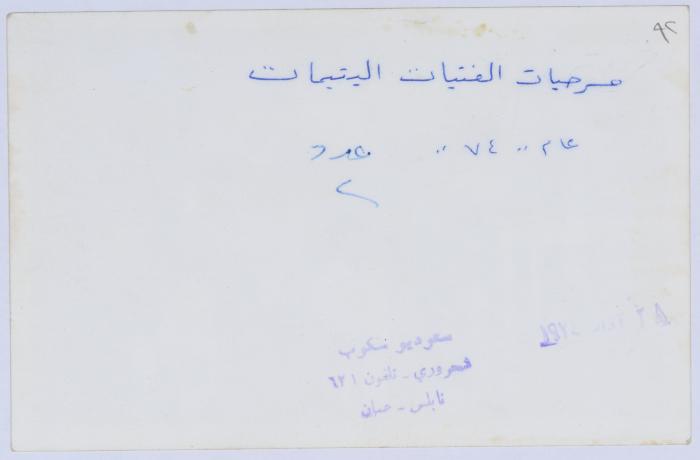 ٩٢
مسرحيات الفتيات اليتيمات
عام .. ٧٤ .. عدد
٢
٢٨
ستوديو سكوب
شحروري - تلفون ٦٢١
نابلس - عمان